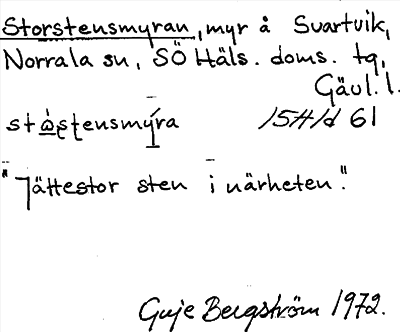 Storstensmyran, myr å Svartvik,
Norrala sn, SÖ Häls. doms. tg,
Gävl. l.
15H1d 61
"Jättestor sten i närheten."
Guje Bergström 1972.